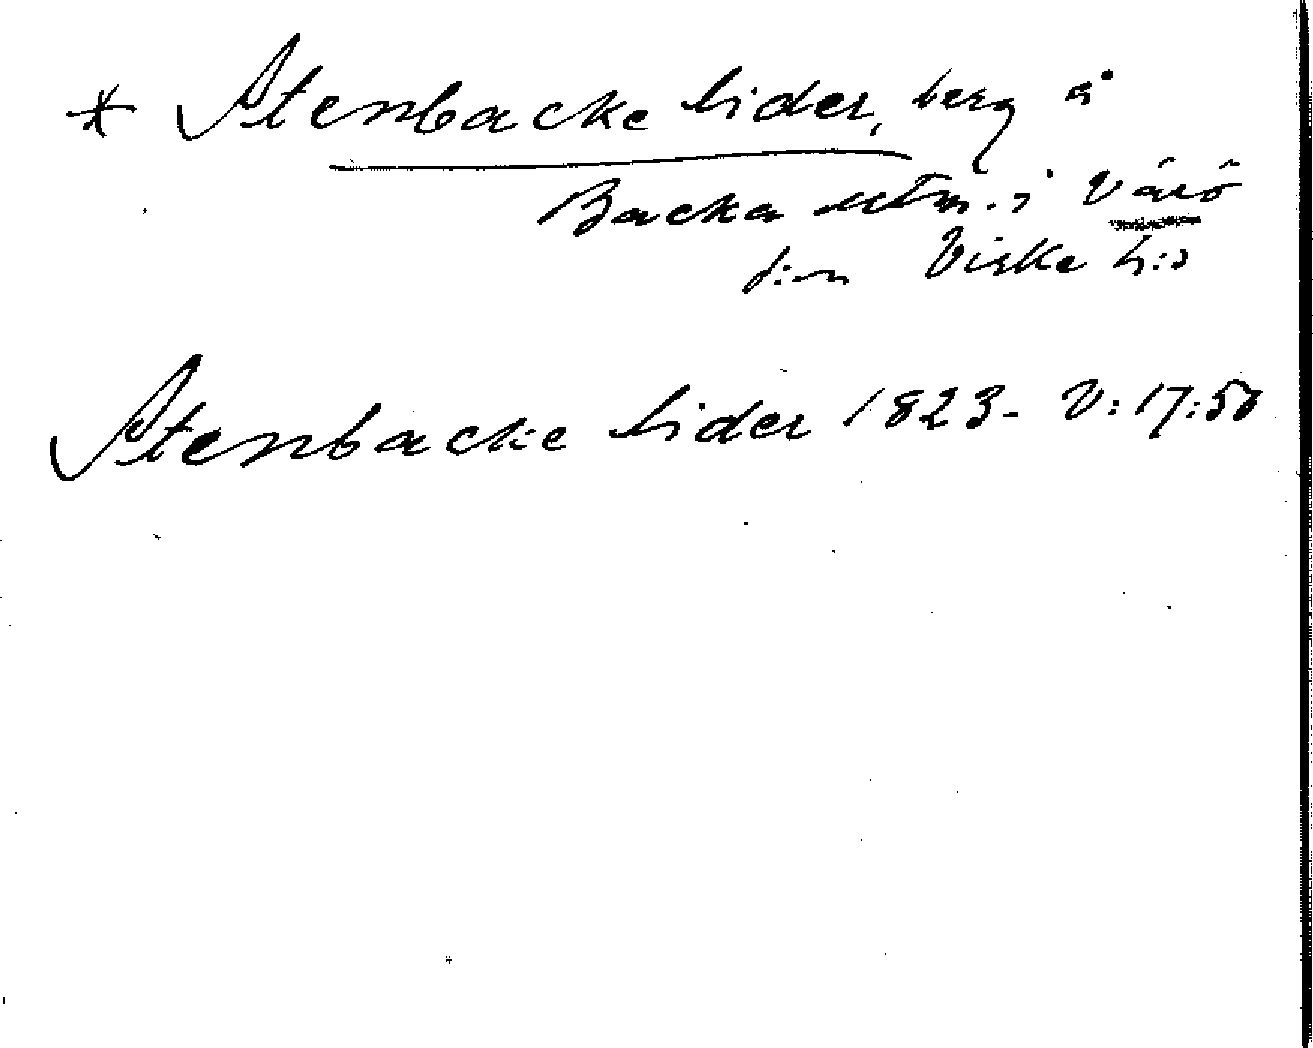 * Stenbacke lider, berg å
Backa utm. i Värö
s:n Viske h:d
Stenbacke lider 1823 - V:17:50